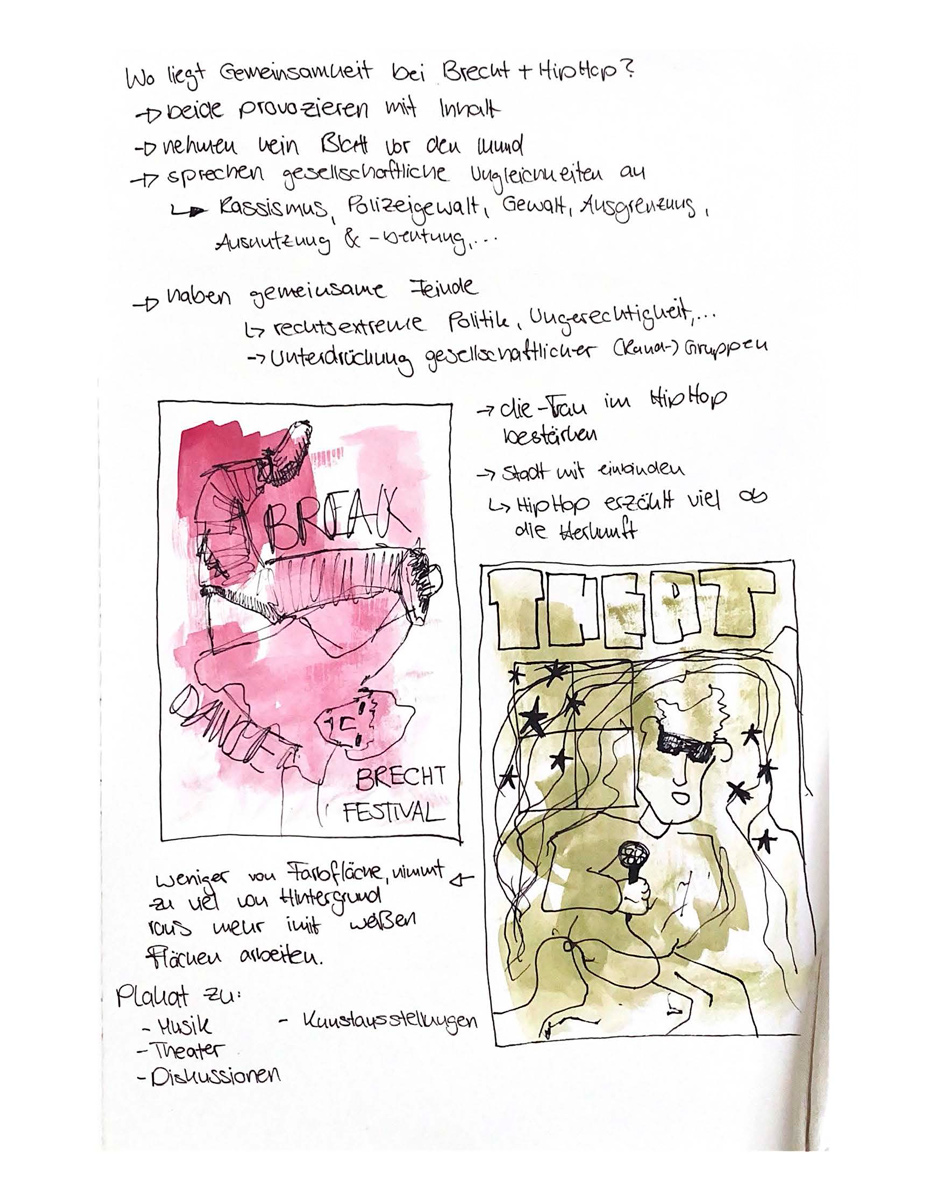 Wo liegt Gemeinsamkeit bei Brecht + HipHop?
→ beide provozieren mit Inhalt
→ nehmen kein Blatt vor den Mund
→ sprechen gesellschaftliche Ungleichheiten an
↳ Rassismus, Polizeigewalt, Gewalt, Ausgrenzung,
Ausnutzung & -beutung,...
→ haben gemeinsame Feinde
↳ rechtsextreme Politik, Ungerechtigkeit,...
→ Unterdrückung gesellschaftlicher (Rand-) Gruppen
→ die Frau im HipHop
bestärken
→ Stadt mit einbinden
↳ HipHop erzählt viel ob
die Herkunft
BREAK
DANCE
BRECHT
FESTIVAL
THEAT
weniger von Farbfläche, nimmt
zu viel von Hintergrund
raus mehr mit weißen
Flächen arbeiten.
Plakat zu:
- Musik
- Theater
- Diskussionen
- Kunstausstellungen